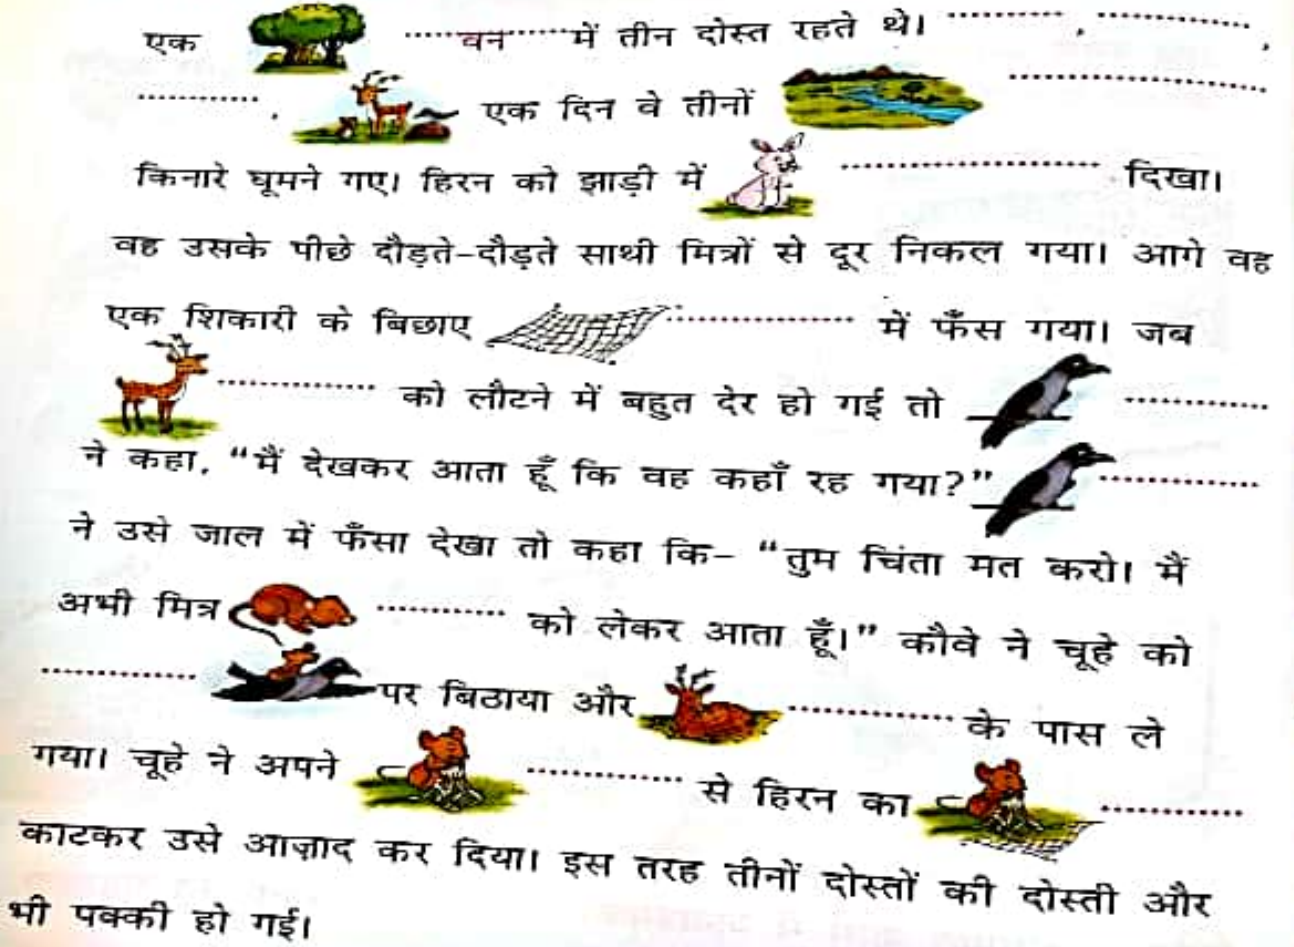 एक ........वन........ में तीन दोस्त रहते थे। ............, ................,
............, एक दिन वे तीनों ..........................
किनारे घूमने गए। हिरन को झाड़ी में .......................... दिखा।
वह उसके पीछे दौड़ते-दौड़ते साथी मित्रों से दूर निकल गया। आगे वह
एक शिकारी के बिछाए .................... में फँस गया। जब
................ को लौटने में बहुत देर हो गई तो ................
ने कहा, “मैं देखकर आता हूँ कि वह कहाँ रह गया?” ................
ने उसे जाल में फँसा देखा तो कहा कि– “तुम चिंता मत करो। मैं
अभी मित्र ............. को लेकर आता हूँ।” कौवे ने चूहे को
................ पर बिठाया और ................ के पास ले
गया। चूहे ने अपने ................ से हिरन का ................
काटकर उसे आज़ाद कर दिया। इस तरह तीनों दोस्तों की दोस्ती और
भी पक्की हो गई।